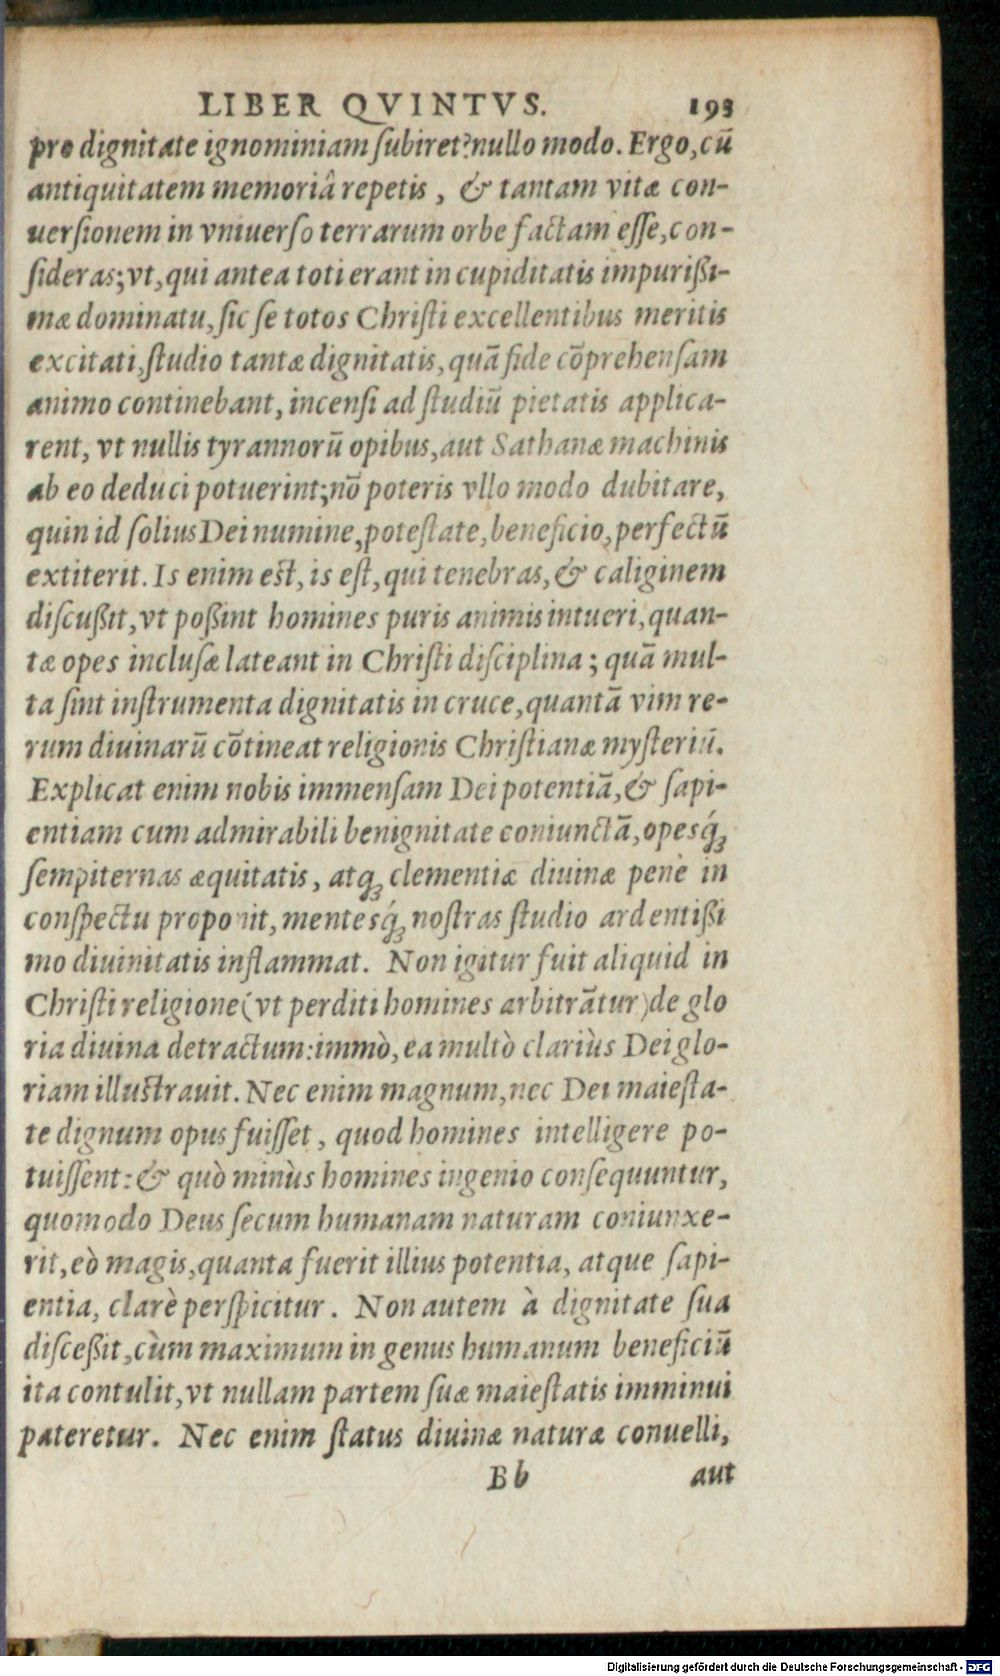 LIBER QVINTVS. 193
pro dignitate ignominiam ſubiret? nullo modo. Ergo, cū
antiquitatem memoriâ repetis, & tantam vitæ con-
uerſionem in vniuerſo terrarum orbe factam eſſe, con-
ſideras; vt, qui antea toti erant in cupiditatis impurißi-
mæ dominatu, ſic ſe totos Chriſti excellentibus meritis
excitati, ſtudio tantæ dignitatis, quā fide cōprehenſam
animo continebant, incenſi ad ſtudiū pietatis applica-
rent, vt nullis tyrannorū opibus, aut Sathanæ machinis
ab eo deduci potuerint; nō poteris vllo modo dubitare,
quin id ſolius Dei numine, poteſtate, beneficio, perfectū
extiterit. Is enim eſt, is eſt, qui tenebras, & caliginem
diſcußit, vt poßint homines puris animis intueri, quan-
tæ opes incluſæ lateant in Chriſti diſciplina; quā mul-
ta ſint inſtrumenta dignitatis in cruce, quantā vim re-
rum diuinarū cōtineat religionis Chriſtianæ myſteriū.
Explicat enim nobis immenſam Dei potentiā, & ſapi-
entiam cum admirabili benignitate coniunctā, opesq́ꝫ
ſempiternas æquitatis, atqꝫ clementiæ diuinæ penè in
conſpectu proponit, mentesq́ꝫ noſtras ſtudio ardentißi
mo diuinitatis inflammat. Non igitur fuit aliquid in
Chriſti religione (vt perditi homines arbitrātur) de glo
ria diuina detractum: immò, ea multò clariùs Dei glo-
riam illuſtrauit. Nec enim magnum, nec Dei maieſta-
te dignum opus fuiſſet, quod homines intelligere po-
tuiſſent: & quò minùs homines ingenio conſequuntur,
quomodo Deus ſecum humanam naturam coniunxe-
rit, eò magis, quanta fuerit illius potentia, atque ſapi-
entia, clarè perſpicitur. Non autem à dignitate ſua
diſceßit, cùm maximum in genus humanum beneficiū
ita contulit, vt nullam partem ſuæ maieſtatis imminui
pateretur. Nec enim ſtatus diuinæ naturæ conuelli,
Bb aut
Digitalisierung gefördert durch die Deutsche Forschungsgemeinschaft - DFG